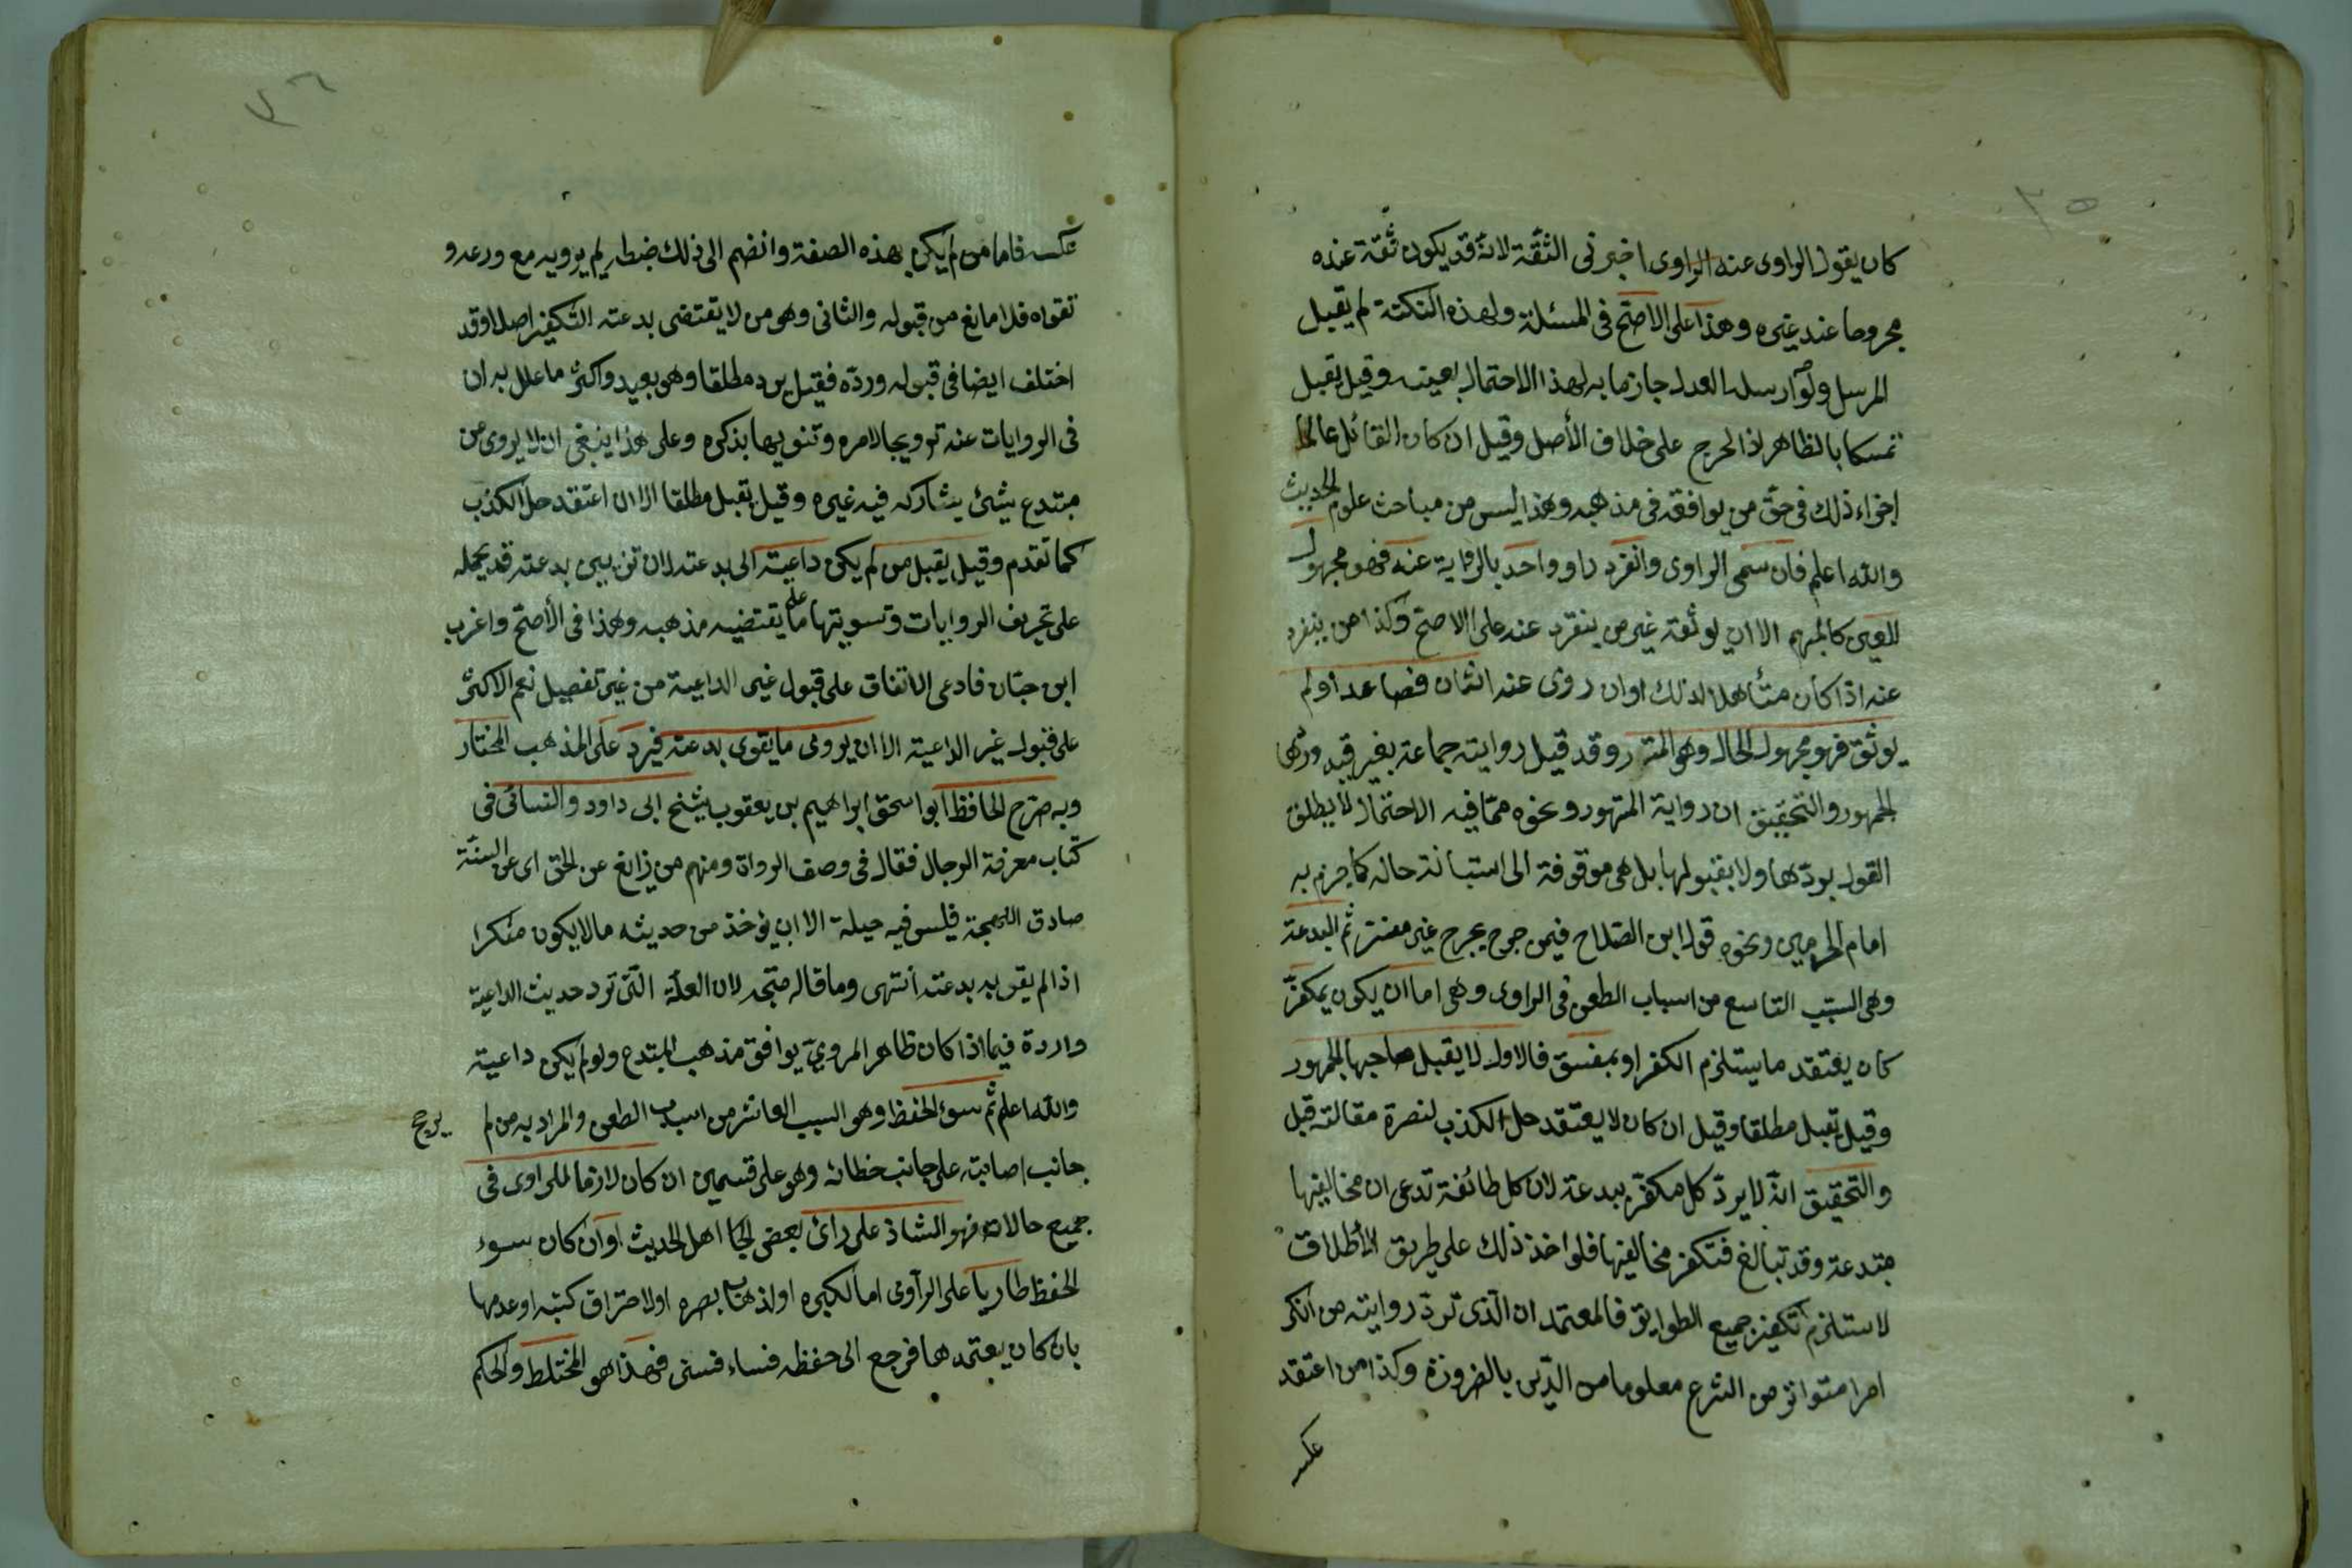 ٣٥
كان يقول الراوى عنه الراوى اخبرنى الثقة لانه قد يكون ثقة عنده
مجروحا عند غيره وهذا على الاصح فى المسئلة ولهذه النكتة لم يقبل
المرسل ولو ارسله العدل جازما به لهذا الاحتمال بعينه وقيل يقبل
تمسكا بالظاهر اذ الجرح على خلاف الأصل وقيل ان كان القائل عالما
اجزاء ذلك فى حق من يوافقه فى مذهبه وهذا ليس من مباحث علوم الحديث
والله اعلم فان سمى الراوى وانفرد راو واحد بالرواية عنه فهو مجهول
العين كالمبهم الا ان يوثقه غير من ينفرد عنه على الاصح وكذا من ينفرد
عنه اذا كان متأهلا لذلك او ان روى عنه اثنان فصاعدا ولم
يوثق فهو مجهول الحال وهو المستور وقد قبل روايته جماعة بغير قيد وردها
الجمهور والتحقيق ان رواية المستور ونحوه مما فيه الاحتمال لا يطلق
القول بردها ولا بقبولها بل هى موقوفة الى استبانة حاله كما جزم به
امام الحرمين ونحوه قول ابن الصلاح فيمن جرح بجرح غير مفسر ثم البدعة
وهى السبب التاسع من اسباب الطعن فى الراوى وهى اما ان يكون بمكفر
كان يعتقد ما يستلزم الكفر او بمفسق فالاول لا يقبل صاحبها الجمهور
وقيل يقبل مطلقا وقيل ان كان لا يعتقد حل الكذب لنصرة مقالته قبل
والتحقيق انه لا يرد كل مكفر ببدعة لان كل طائفة تدعى ان مخالفيها
مبتدعة وقد تبالغ فتكفر مخالفيها فلو اخذ ذلك على طريق الأطلاق
لاستلزم تكفير جميع الطوايق فالمعتمد ان الذى ترد روايته من انكر
امرا متواتر من الشرع معلوما من الدين بالضرورة وكذا من اعتقد
عكسه
٣٦
عكسه فاما من لم يكن بهذه الصفة وانضم الى ذلك ضبطه لم يرويه مع ورعه و
تقواه فلا مانع من قبوله والثانى وهو من لا يقتضى بدعته التكفير اصلا وقد
اختلف ايضا فى قبوله ورده فقيل يرد مطلقا وهو بعيد واكثر ما علل به ان
فى الروايات عنه ترويجا لامره وتنويها بذكره وعلى هذا ينبغى ان لا يروى من
مبتدع بشئ يشاركه فيه غيره وقيل يقبل مطلقا الا ان اعتقد حل الكذب
كما تقدم وقيل يقبل من لم يكن داعية الى بدعته لان تزيين بدعته قد يحمله
على تحريف الروايات وتسويتها على ما يقتضيه مذهبه وهذا فى الأصح واغرب
ابن حبان فادعى الاتفاق على قبول غير الداعية من غير تفصيل نعم الاكثر
على قبول غير الداعية الا ان يروى ما يقوى بدعته فيرد على المذهب المختار
وبه صرح الحافظ ابو اسحق ابراهيم بن يعقوب شيخ ابى داود والنسائى فى
كتاب معرفة الرجال فقال فى وصف الرواة ومنهم من زائغ عن الحق اى عن السنة
صادق اللهجة فليس فيه حيلة الا ان يؤخذ من حديثه ما لا يكون منكرا
اذا لم يقو به بدعته انتهى وما قاله متجه لان العلة التى ترد حديث الداعية
واردة فيما اذا كان ظاهر المروي يوافق مذهب المبتدع ولو لم يكن داعية
والله اعلم ثم سوء الحفظ وهو السبب العاشر من اسباب الطعن والمراد به من لم
يرجح
جانب اصابته على جانب خطائه وهو على قسمين ان كان لازما للراوى فى
جميع حالاته فهو الشاذ على رائ بعض اهل الحديث او ان كان سوء
الحفظ طاريا على الراوى اما لكبره او لذهاب بصره او لاحتراق كتبه او عدمها
بان كان يعتمدها فرجع الى حفظه فساء فنسى فهذا هو المختلط والحكم